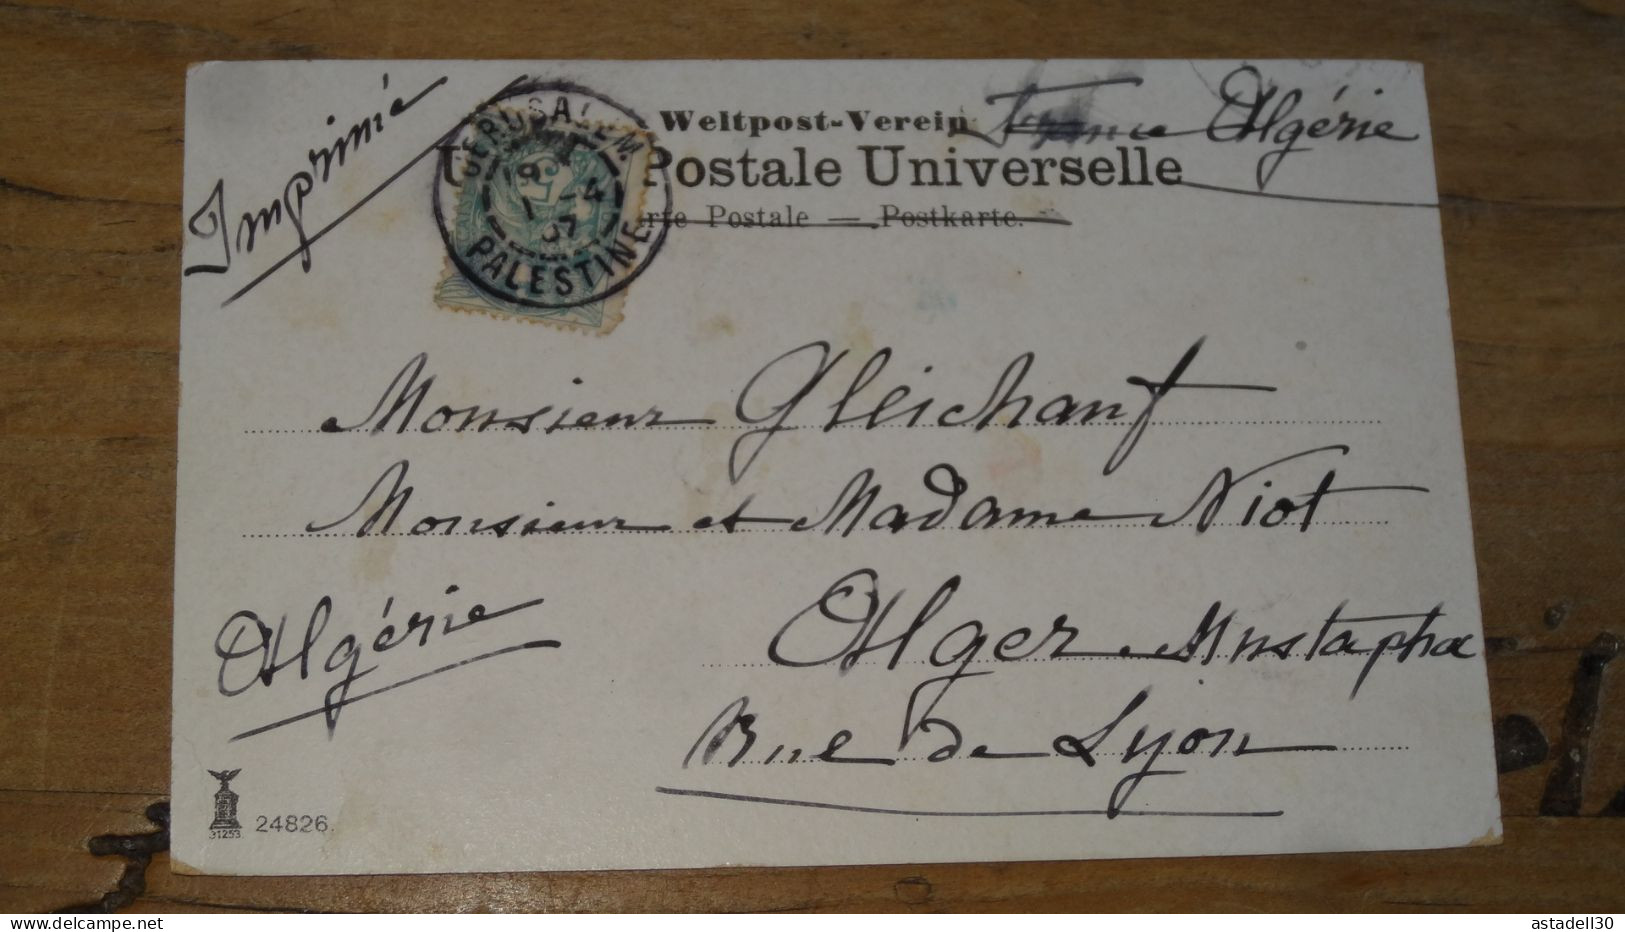 Imprimé
Weltpost-Verein
U Postale Universelle
rte Postale — Postkarte.
France Algérie
JERUSALEM
19
1 -4
07
PALESTINE
5
Monsieur Gleichauf
Monsieur et Madame Niot
Alger. Mustapha
Algérie
Rue de Lyon
31253
24826.
astadell30